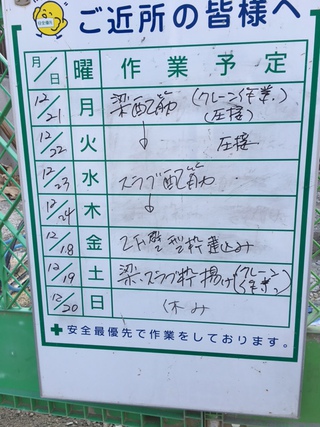 ご近所の皆様へ
月/日 曜 作業予定
12/21 月 梁配筋 (クレーン作業.) (圧接)
12/22 火 ↓ 圧接
12/23 水 スラブ配筋
12/24 木 ↓
12/18 金 建込み
12/19 土 梁、スラブ枠揚げ (クレーン作業)
12/20 日 休み
安全最優先で作業をしております。